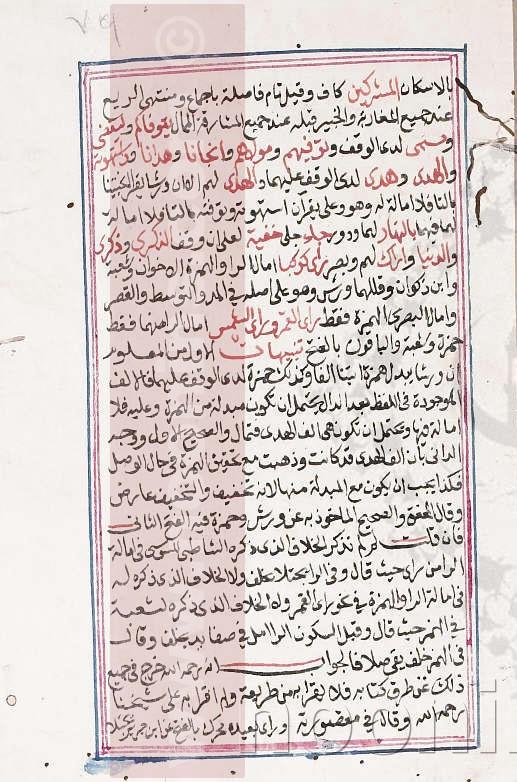 بالاسكان المشركين كاف وقيل تام فاصلة باجماع ومنتهى الربع
عند جميع المغاربة والخبير قبله عند جميع المشارقة الممال يتوفاكم وليقضى
ومسمى لدى الوقف ويتوفيهم وموليهم وانجانا وهدانا واستهوته
والهدى وهدى لدى الوقف عليهما والهدى لهم الا ان ورشا يقرا انجيتنا
بالتا فلا امالة له وهو وعلى يقران استهوته وتوفته بالتا فلا امالة
لهما فيهما بالنهار لهما ودور جلى خفية لعلمان وقفا الذكرى وذكرى
والدنيا واراك لهم وبصر راى كوكبا امال الرا والهمزة الاخوان وشعبة
وابن ذكوان وقللهما ورش وهو على اصله فى المد والتوسط والقصر
وامال البصرى الهمزة فقط راى القمر وراى الشمس امال الرا منهما فقط
حمزة وشعبة والباقون بالفتح تنبيهات الاول من المعلوم
ان ورشا يبدل همزة ائتنا الفا وكذلك حمزة لدى الوقف عليهما فالالف
الموجودة فى اللفظ بعد الدال يحتمل ان تكون مبدلة من الهمزة وعليه فلا
امالة فيها ويحتمل ان تكون هى الف الهدى فتمال والصحيح الاول ووجه
الدانى بان الف الهدى قد كانت وذهبت مع تحقيق الهمزة فى حال الوصل
فكذا يجب ان يكون مع المبدلة منها لانه تخفيف والتخفيف عارض
وقال المحقق والصحيح الماخوذ به عن ورش وحمزة فيه الفتح الثانى
فان قلت لم لم تذكر الخلاف الذى ذكره الشاطبى للسوسى فى امالة
الرا من راى حيث قال وفى الرا يجتلا بخلف ولا الخلاف الذى ذكره له
فى امالة الرا والهمزة فى نحو راى القمر ولا الخلاف الذى ذكره لشعبة
فى الهمز حيث قال وقبل السكون الرا امل فى صفا يد بخلف وقال
فى الهمز خلف يقى صلا فالجواب انه رحمه الله خرج فى جميع
ذلك عن طرق كتابه فلا يقرا به من طريقه ولم اقرا به على شيخنا
رحمه الله وقال فى مقصورته